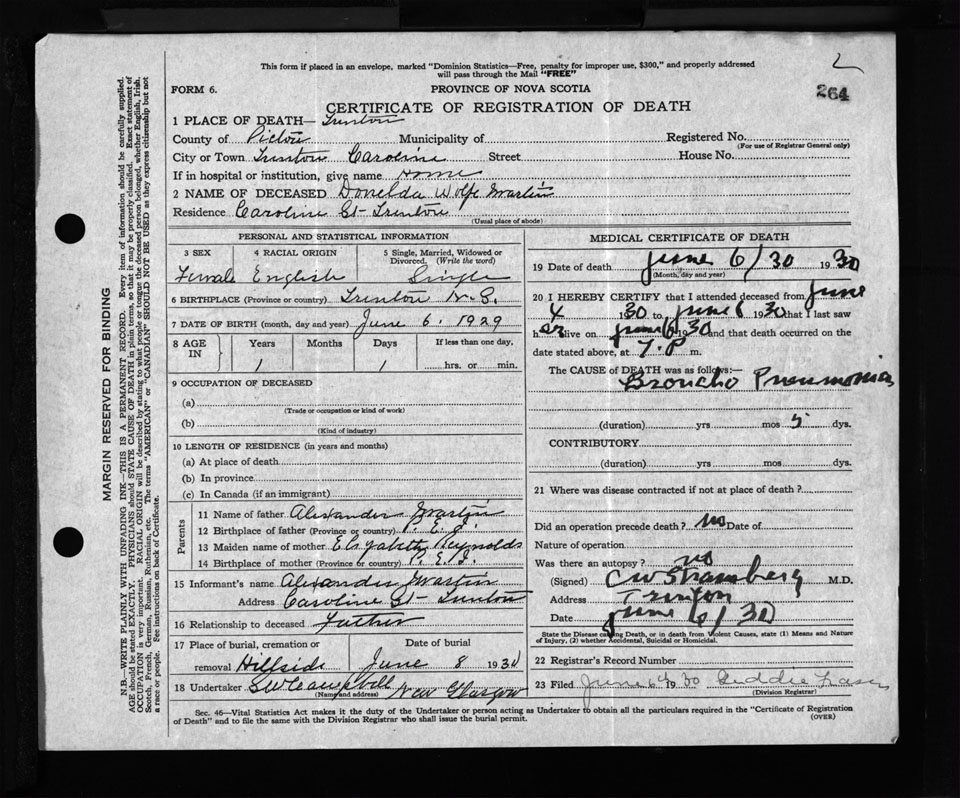 This form if placed in an envelope, marked "Dominion Statistics—Free, penalty for improper use, $300," and properly addressed
will pass through the Mail "FREE"
2
264
FORM 6.
PROVINCE OF NOVA SCOTIA
CERTIFICATE OF REGISTRATION OF DEATH
1 PLACE OF DEATH— Trenton
County of Pictou Municipality of Registered No.
(For use of Registrar General only)
City or Town Trenton Caroline Street House No.
If in hospital or institution, give name Home
2 NAME OF DECEASED Donelda Wolfe Martin
Residence Caroline St - Trenton
(Usual place of abode)
PERSONAL AND STATISTICAL INFORMATION
3 SEX 4 RACIAL ORIGIN 5 Single, Married, Widowed or
Divorced. (Write the word)
Female English Single
6 BIRTHPLACE (Province or country) Trenton N.S.
7 DATE OF BIRTH (month, day and year) June 6. 1929
8 AGE IN Years Months Days If less than one day,
1 1 hrs. or min.
9 OCCUPATION OF DECEASED
(a)
(Trade or occupation or kind of work)
(b)
(Kind of industry)
10 LENGTH OF RESIDENCE (in years and months)
(a) At place of death
(b) In province
(c) In Canada (if an immigrant)
Parents
11 Name of father Alexander Martin
12 Birthplace of father (Province or country) P.E.I.
13 Maiden name of mother Elizabeth Reynolds
14 Birthplace of mother (Province or country) P.E.I.
15 Informant's name Alexander Martin
Address Caroline St - Trenton
16 Relationship to deceased Father
17 Place of burial, cremation or Date of burial
removal Hillside June 8 1930
18 Undertaker SW Campbell New Glasgow
(Name and address)
MEDICAL CERTIFICATE OF DEATH
19 Date of death June 6/30 1930
(Month, day and year)
20 I HEREBY CERTIFY that I attended deceased from June
4 1930 to June 6 1930 that I last saw
her alive on June 6 1930 and that death occurred on the
date stated above, at 7.P m.
The CAUSE of DEATH was as follows:—
Broncho Pneumonia
(duration) yrs mos 5 dys.
CONTRIBUTORY
(duration) yrs. mos. dys.
21 Where was disease contracted if not at place of death?
Did an operation precede death? no Date of
Nature of operation
Was there an autopsy? no
(Signed) CW Stramberg M.D.
Address Trenton
Date June 6/30
State the Disease causing Death, or in death from Violent Causes, state (1) Means and Nature
of Injury, (2) whether Accidental, Suicidal or Homicidal.
22 Registrar's Record Number
23 Filed June 6th 1930 Geddie Fraser
(Division Registrar)
Sec. 46—Vital Statistics Act makes it the duty of the Undertaker or person acting as Undertaker to obtain all the particulars required in the "Certificate of Registration
of Death" and to file the same with the Division Registrar who shall issue the burial permit. (OVER)
MARGIN RESERVED FOR BINDING
N.B.—WRITE PLAINLY WITH UNFADING INK—THIS IS A PERMANENT RECORD. Every item of information should be carefully supplied.
AGE should be stated EXACTLY. PHYSICIANS should STATE CAUSE OF DEATH in plain terms, so that it may be properly classified. Exact statement of
OCCUPATION is very important. RACIAL ORIGIN will be described by stating to what people or tongue the deceased person belonged, whether English, Irish,
Scotch, French, German, Russian, Ruthenian, etc. The terms "AMERICAN" or "CANADIAN" SHOULD NOT BE USED as they express citizenship but not
a race or people. See instructions on back of Certificate.